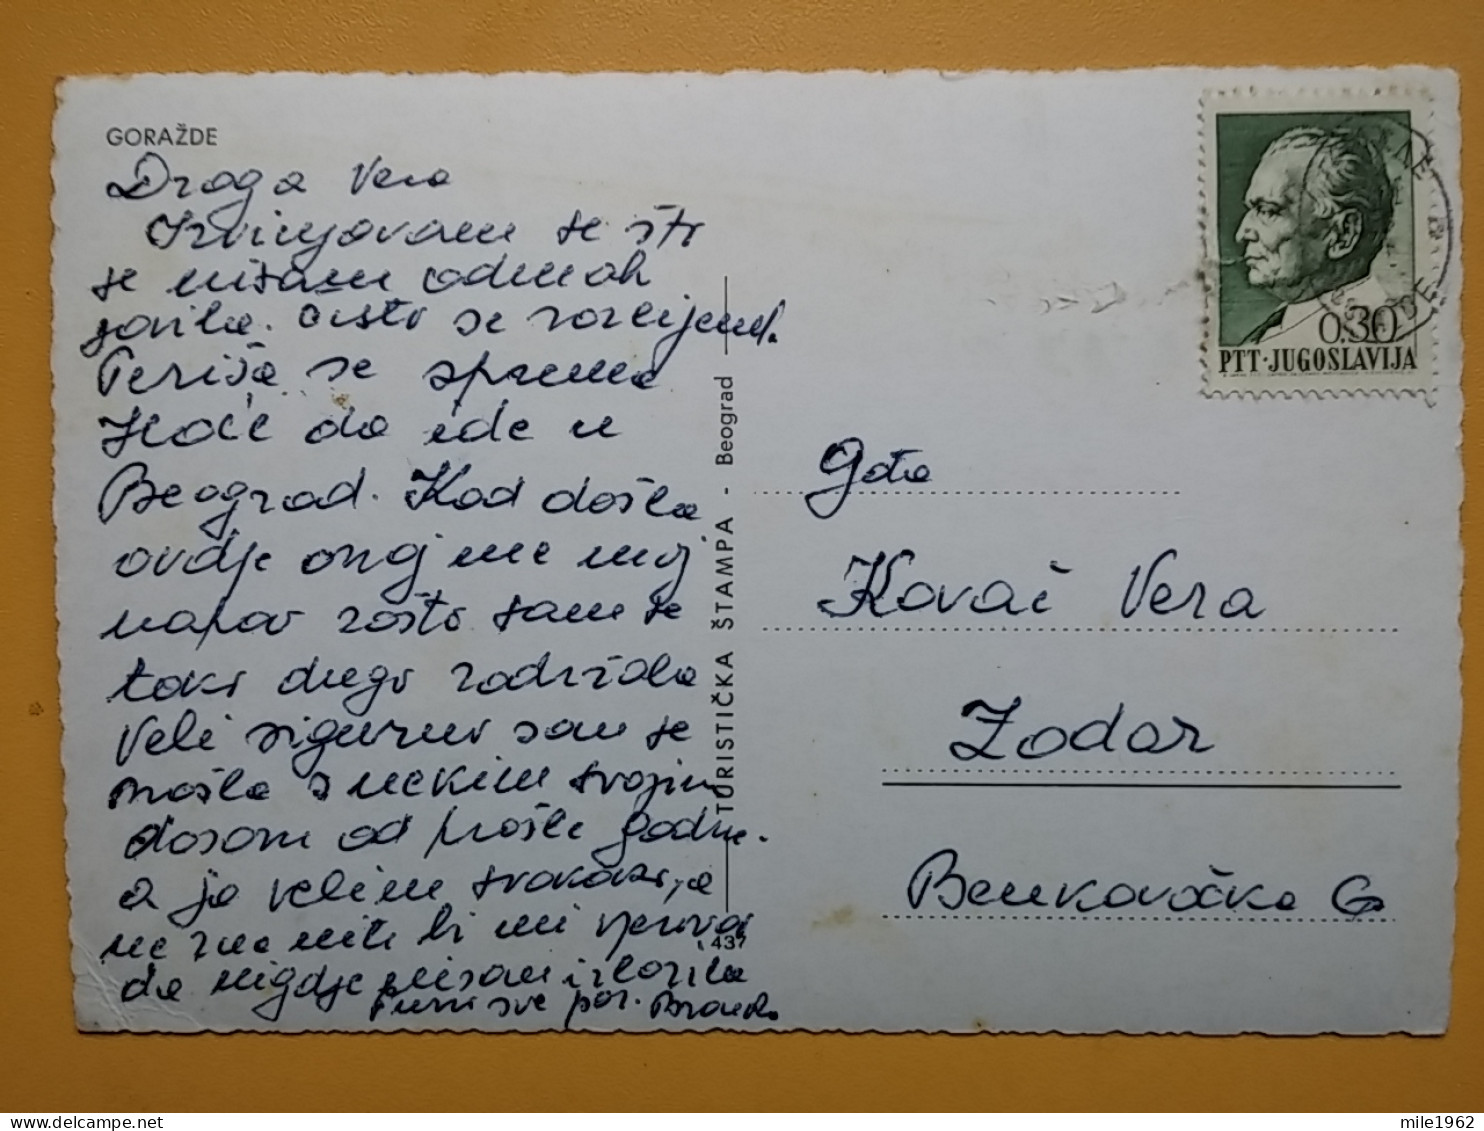 GORAŽDE
Draga Vera
Izvinjavam se što
se nisam odmah
javila. Često se razlijevala.
Periša se sprema
Hoće da ide u
Beograd. Kad došla
ovdje onaj me moj
napao zašto sam se
tako dugo zadržala
Veli sigurno sam se
našla s nekim svojim
dasom od prošle godine.
a ja velim svakako, a
ne zna niti bi mi vjerovao
da nigdje nisam izlazila
Puno sve poz. Branka
TURISTIČKA ŠTAMPA - Beograd
437
0.30
PTT·JUGOSLAVIJA
Gđa
Kovač Vera
Zadar
Benkovačka 6
mile1962